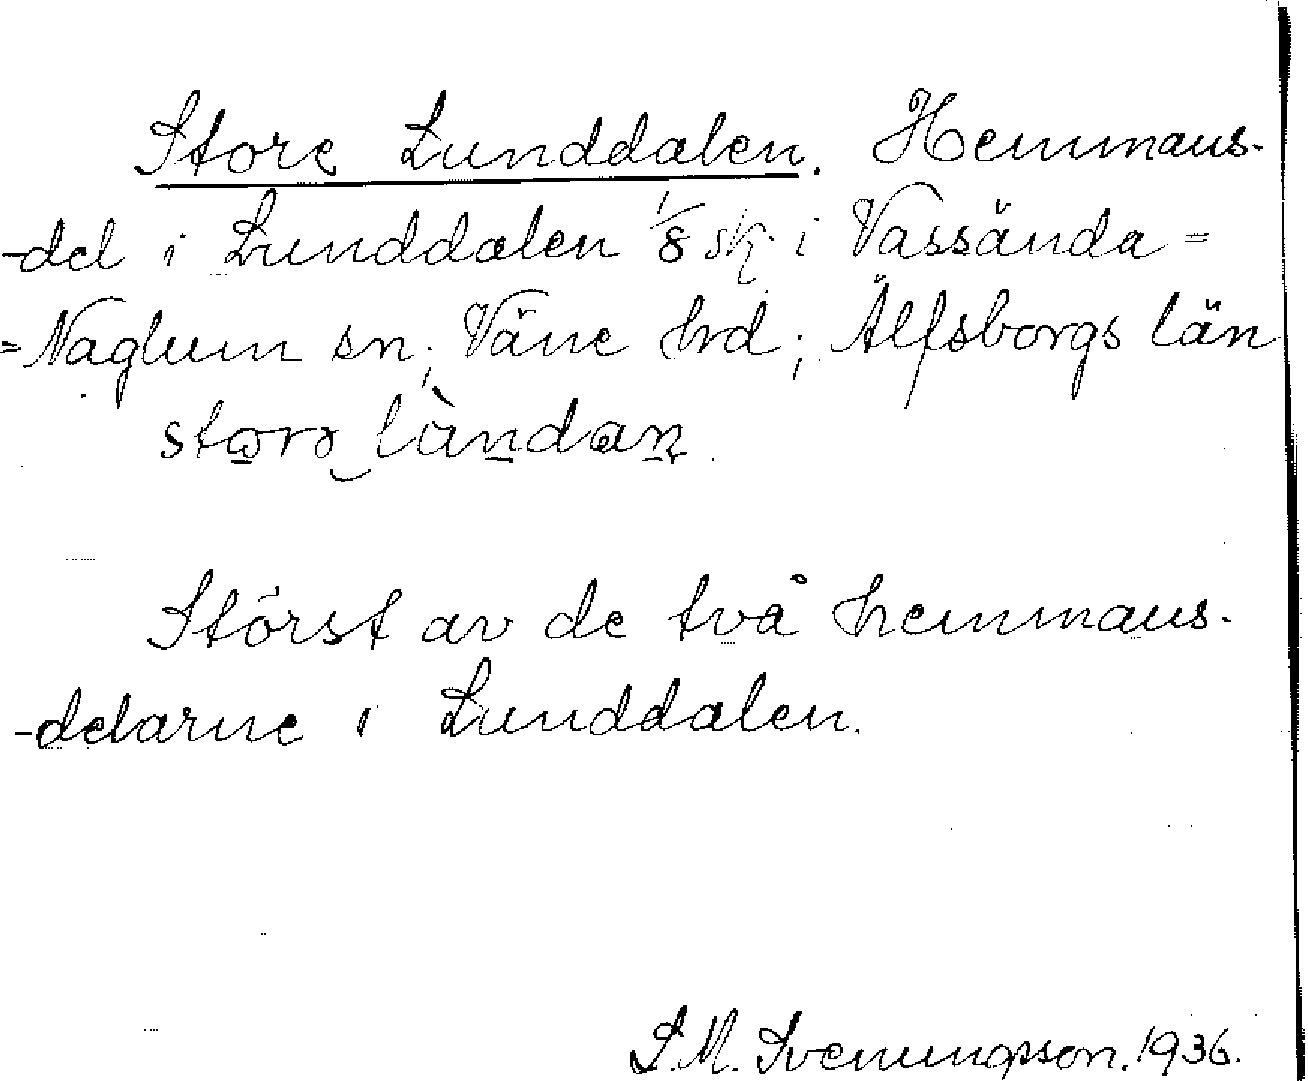 Store Lunddalen. Hemmans-
-del i Lunddalen 1/8 sk. i Vassända=
=Naglum sn; Väne hd; Älfsborgs län
storə làndan.
Störst av de två hemmans-
-delarne i Lunddalen.
S.M. Svenungsson. 1936.